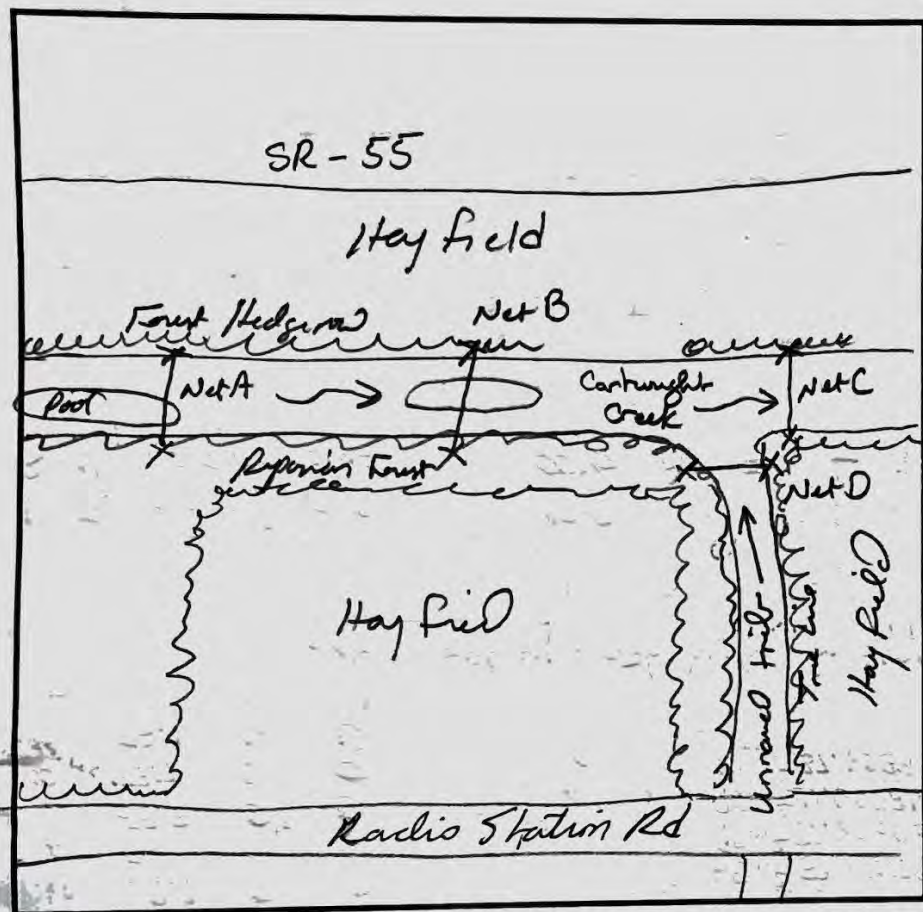 SR-55
Hay field
Forest Hedgerow
Net B
Pool
Net A
Cartwright
Creek
Net C
Riparian Forest
Net D
Hay field
Unnamed trib
Hay Field
Radio Station Rd